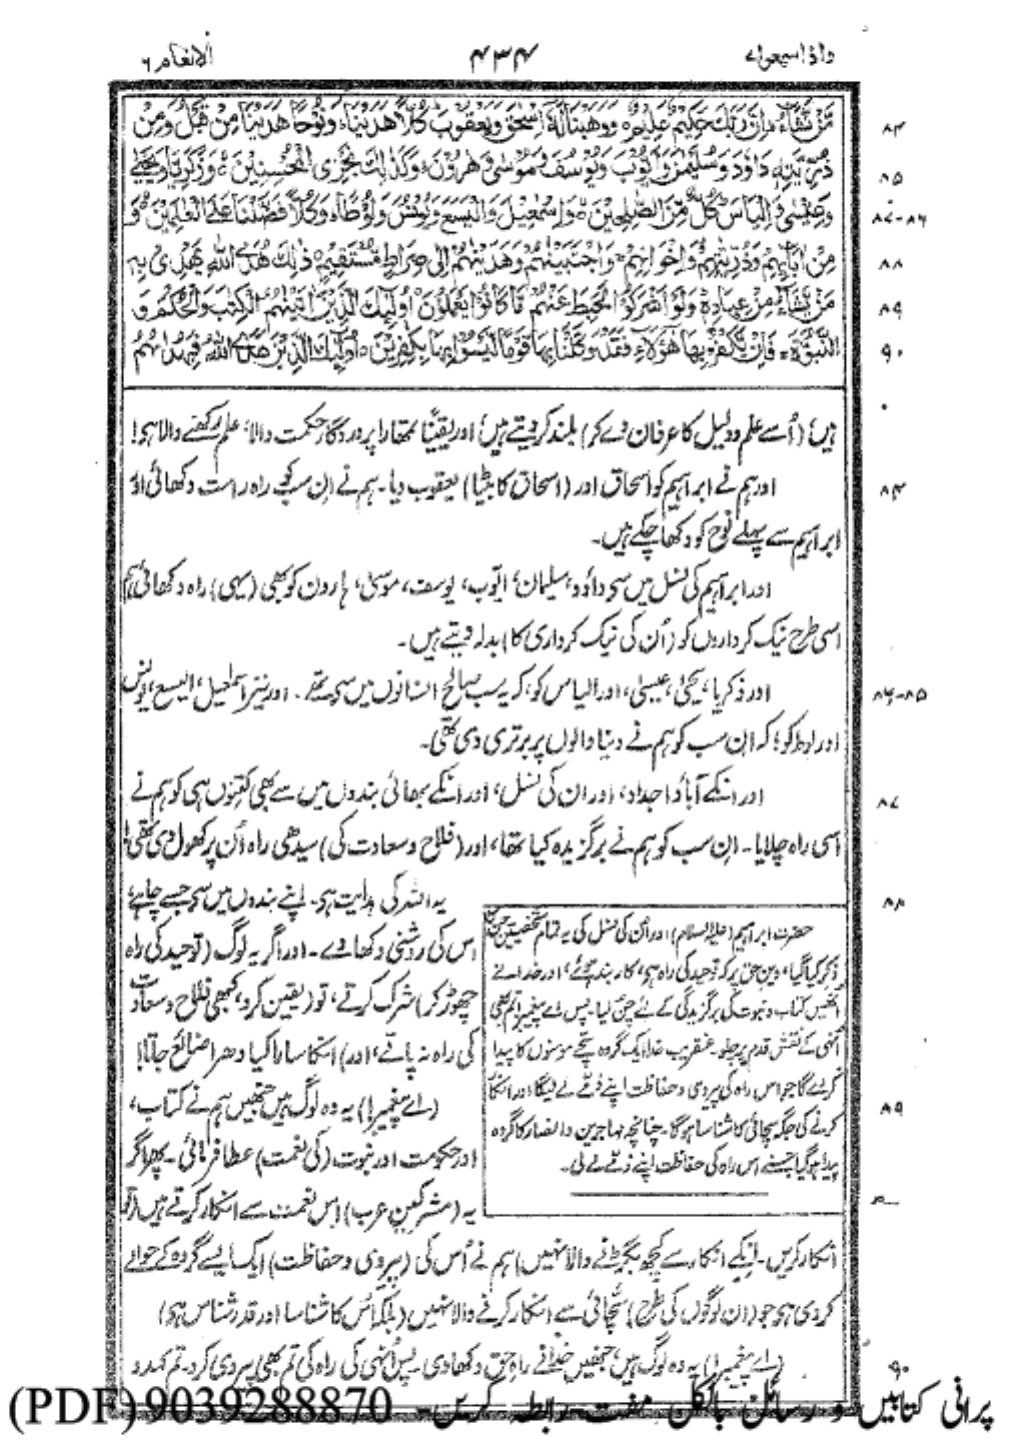 واذا سمعوا ۷ ۴۳۴ الانعام ۶
مَّنْ نَّشَآءُ ؕ اِنَّ رَبَّكَ حَكِيْمٌ عَلِيْمٌ ۝ وَوَهَبْنَا لَهٗۤ اِسْحٰقَ وَيَعْقُوْبَ ؕ كُلًّا هَدَيْنَا ۚ وَنُوْحًا هَدَيْنَا مِنْ قَبْلُ وَمِنْ ۸۴
ذُرِّيَّتِهٖ دَاوٗدَ وَسُلَيْمٰنَ وَاَيُّوْبَ وَيُوْسُفَ وَمُوْسٰى وَهٰرُوْنَ ؕ وَكَذٰلِكَ نَجْزِى الْمُحْسِنِيْنَ ۝ وَزَكَرِيَّا وَيَحْيٰى ۸۵
وَعِيْسٰى وَاِلْيَاسَ ؕ كُلٌّ مِّنَ الصّٰلِحِيْنَ ۝ وَاِسْمٰعِيْلَ وَالْيَسَعَ وَيُوْنُسَ وَلُوْطًا ؕ وَكُلًّا فَضَّلْنَا عَلَى الْعٰلَمِيْنَ ۝ وَ ۸۶-۸۷
مِنْ اٰبَآئِهِمْ وَذُرِّيّٰتِهِمْ وَاِخْوَانِهِمْ ۚ وَاجْتَبَيْنٰهُمْ وَهَدَيْنٰهُمْ اِلٰى صِرَاطٍ مُّسْتَقِيْمٍ ۝ ذٰلِكَ هُدَى اللّٰهِ يَهْدِىْ بِهٖ ۸۸
مَنْ يَّشَآءُ مِنْ عِبَادِهٖ ؕ وَلَوْ اَشْرَكُوْا لَحَبِطَ عَنْهُمْ مَّا كَانُوْا يَعْمَلُوْنَ ۝ اُولٰٓئِكَ الَّذِيْنَ اٰتَيْنٰهُمُ الْكِتٰبَ وَالْحُكْمَ وَ ۸۹
النُّبُوَّةَ ۚ فَاِنْ يَّكْفُرْ بِهَا هٰٓؤُلَآءِ فَقَدْ وَكَّلْنَا بِهَا قَوْمًا لَّيْسُوْا بِهَا بِكٰفِرِيْنَ ۝ اُولٰٓئِكَ الَّذِيْنَ هَدَى اللّٰهُ فَبِهُدٰىهُمُ ۹۰
ہیں (اُسے علم و دلیل کا عرفان دے کر) بلند کر دیتے ہیں، اور یقیناً تمھارا پروردگار حکمت والا، علم رکھنے والا ہو!
اور ہم نے ابراہیم کو اسحاق اور (اسحاق کا بیٹا) یعقوب دیا۔ ہم نے ان سب کو راہ راست دکھائی اور ۸۴
ابراہیم سے پہلے نوح کو دکھا چکے ہیں۔
اور ابراہیم کی نسل میں سے داؤد، سلیمان، ایوب، یوسف، موسیٰ، ہارون کو بھی (یہی) راہ دکھائی ہم
اسی طرح نیک کرداروں کو (اُن کی نیک کرداری کا) بدلہ دیتے ہیں۔
اور زکریا، یحییٰ، عیسیٰ، اور الیاس کو، کہ یہ سب صالح انسانوں میں سے تھے۔ اور نیز اسماعیل، الیسع، یونس ۸۵-۸۶
اور لوط کو؛ کہ ان سب کو ہم نے دنیا والوں پر برتری دی تھی۔
اور انکے آباؤ اجداد، اور ان کی نسل، اور انکے بھائی بندوں میں سے بھی کتنوں ہی کو ہم نے ۸۷
اسی راہ چلایا۔ ان سب کو ہم نے برگزیدہ کیا تھا، اور (فلاح و سعادت کی) سیدھی راہ اُن پر کھول دی تھی!
یہ اللہ کی ہدایت ہی۔ اپنے بندوں میں سے جسے چاہے، ۸۸
اس کی روشنی دکھا دے۔ اور اگر یہ لوگ (توحید کی راہ
چھوڑ کر) شرک کرتے، تو (یقین کرو، کبھی فلاح و سعادت
کی راہ نہ پاتے، اور) انکا سارا کیا دھرا ضائع جاتا!
(اے پیغمبر!) یہ وہ لوگ ہیں جنھیں ہم نے کتاب، ۸۹
اور حکومت اور نبوت (کی نعمت) عطا فرمائی۔ پھر اگر
یہ (مشرکین عرب) اس نعمت سے انکار کرتے ہیں، (تو
حضرت ابراہیم (علیہ السلام) اور اُن کی نسل کی یہ تمام شخصیتیں جن کا
ذکر کیا گیا، دین حق پر کہ توحید کی راہ ہی، کاربند ہوئے، اور خدا نے
انھیں کتاب و نبوت کی برگزیدگی کے لئے چن لیا۔ پس اے پیغمبر! تم بھی
انہی کے نقش قدم پر چلو۔ عنقریب خدا ایک گروہ سچے مومنوں کا پیدا
کر دے گا جو اس راہ کی پیروی و حفاظت اپنے ذمے لے لیگا اور انکار
کرنے کی جگہ سچائی کا شناسا ہوگا۔ چنانچہ مہاجرین و انصار کا گروہ
پیدا ہو گیا جسنے اس راہ کی حفاظت اپنے ذمے لے لی۔
انکار کریں۔ انکے انکار سے کچھ بگڑنے والا نہیں) ہم نے اُس کی (پیروی و حفاظت) ایک ایسے گروہ کے حوالے
کر دی ہی جو (ان لوگوں کی طرح) سچائی سے انکار کرنے والا نہیں (بلکہ اُس کا شناسا اور قدر شناس ہی)
(اے پیغمبر!) یہ وہ لوگ ہیں، جنھیں خدا نے راہ حق دکھا دی۔ پس انہی کی راہ کی تم بھی پیروی کرو۔ تم کہدو ۹۰
پرانی کتابیں و رسائل بالکل مفت رابطہ کریں۔ 9039288870 (PDF)